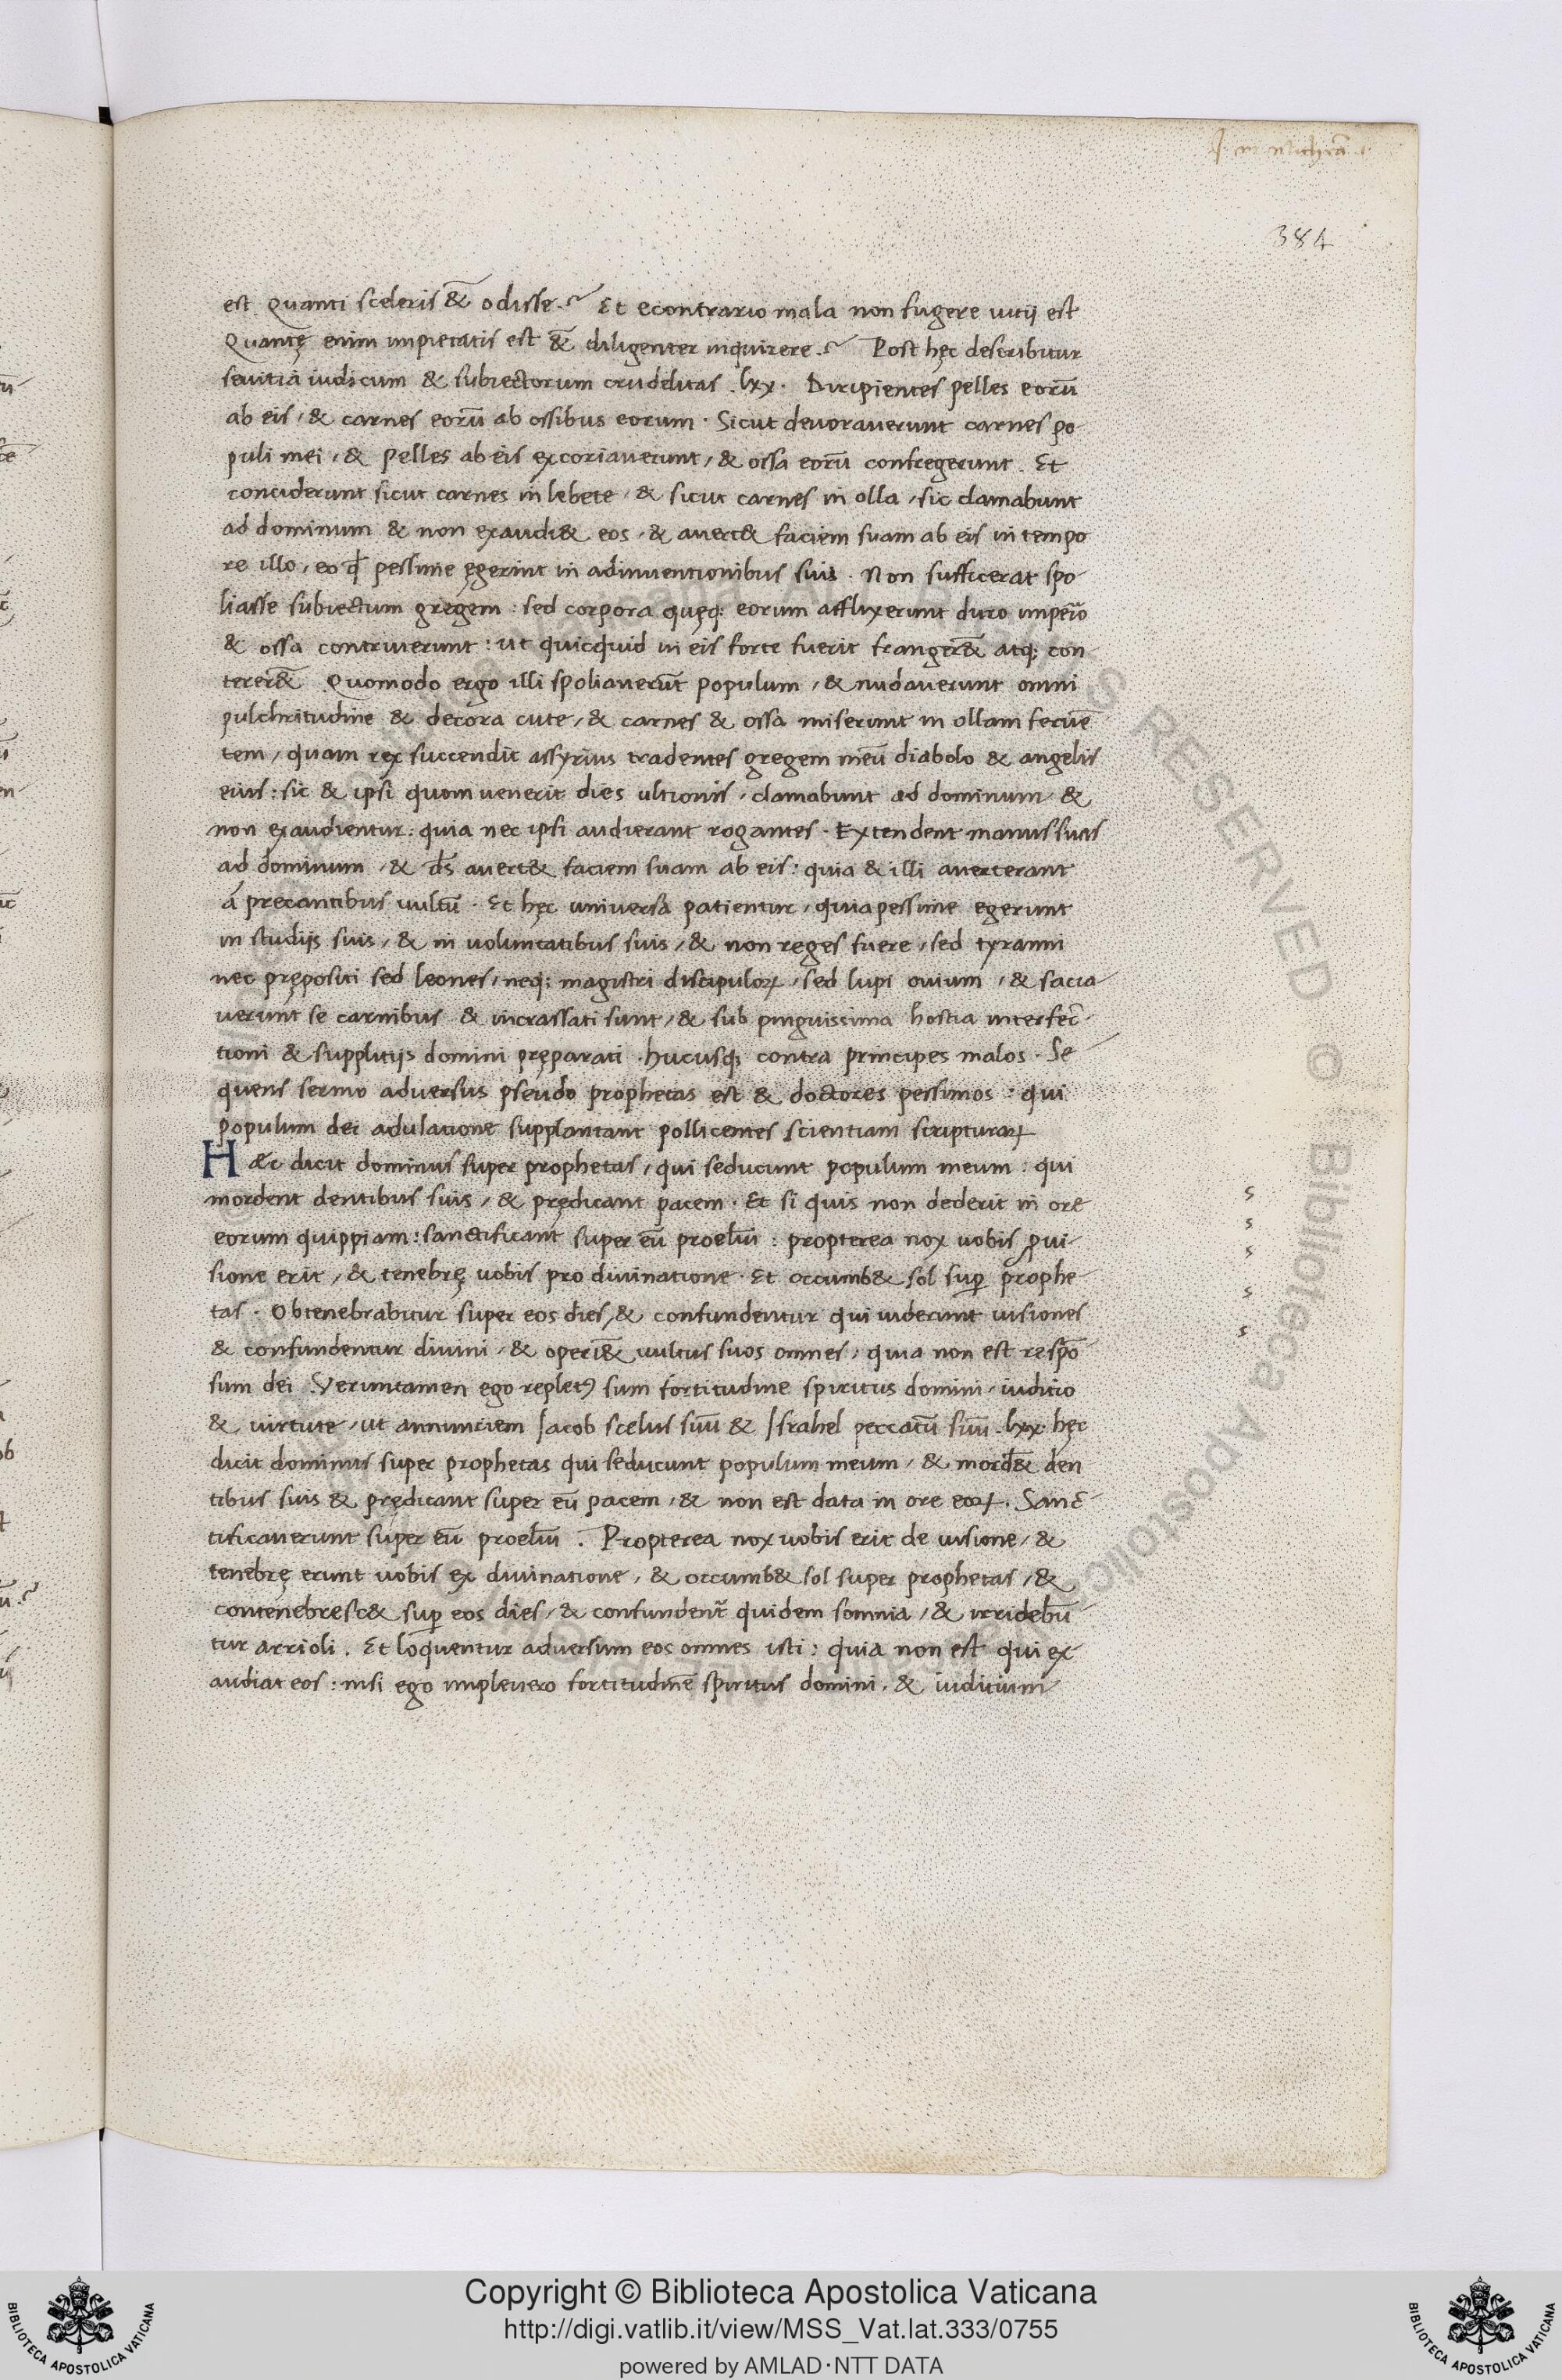 384
est Quanti sceleris &̄ odisse? Et econtrario mala non fugere uitij est
Quantę enim impietatis est &̄ diligenter inquirere? Post hęc describitur
seuitia iudicum & subiectorum crudelitas. lxx. Diripientes pelles eorū
ab eis, & carnes eorū ab ossibus eorum. Sicut deuorauerunt carnes po-
puli mei, & pelles ab eis excoriauerunt, & ossa eorū confregerunt. Et
conciderunt sicut carnes in lebete, & sicut carnes in olla, sic clamabunt
ad dominum & non exaudi& eos, & auert& faciem suam ab eis in tempo
re illo, eo ꝙ pessime ęgerint in adinuentionibus suis. Non sufficerat spo-
liasse subiectum gregem: sed corpora quęq; eorum afflixerunt duro impeīo
& ossa contriuerunt: ut quicquid in eis forte fuerit franger&̄ atq; con-
terer&̄ Quomodo ergo illi spoliauerūt populum, & nudauerunt omni
pulchritudine & decora cute, & carnes & ossa miserunt in ollam feruē
tem, quam rex succendit assyrius tradentes gregem meū diabolo & angelis
eius: sic & ipsi quom uenerit dies ultionis, clamabunt ad dominum &
non exaudientur: quia nec ipsi audierant rogantes. Extendent manus suas
ad dominum, & d̄s auert& faciem suam ab eis: quia & illi auerterant
á precantibus uultū. Et hęc uniuersa patientur, quia pessime egerunt
in studijs suis, & in uoluntatibus suis, & non reges fuere, sed tyranni
nec prępositi sed leones, neq; magistri discipuloꝝ, sed lupi ouium, & sacia
uerunt se carnibus & incrassati sunt, & sub pinguissima hostia interfec-
tioni & supplitijs domini pręparati. hucusq; contra principes malos. Se
quens sermo aduersus pseudo prophetas est & doctores pessimos: qui
populum dei adulatione supplantant pollicentes scientiam scripturaꝝ
Hæc dicit dominus super prophetas, qui seducunt populum meum: qui
mordent dentibus suis, & prędicant pacem. Et si quis non dederit in ore
eorum quippiam: sanctificant super eū proeliū: propterea nox uobis ꝓ ui-
sione erit, & tenebrę uobis pro diuinatione. Et occumb& sol suꝑ prophe-
tas. Obtenebrabitur super eos dies, & confundentur qui uiderunt uisiones
& confundentur diuini, & operi&̄ uultus suos omnes, quia non est respō
sum dei Veruntamen ego replet9 sum fortitudine spiritus domini, iuditio
& uirtute, ut annunciem Jacob scelus suū & Israhel peccatū suū. lxx. hęc
dicit dominus super prophetas qui seducunt populum meum, & mord&̄ den
tibus suis & prędicant super eū pacem, & non est data in ore eoꝝ. Sanc-
tificauerunt super eū proeliū. Propterea nox uobis erit de uisione, &
tenebrę erunt uobis ex diuinatione, & occumb& sol super prophetas, &
contenebresc& suꝑ eos dies, & confundent̄ quidem somnia, & irridebū
tur arrioli. Et loquentur aduersum eos omnes isti: quia non est qui ex
audiat eos: nisi ego impleuero fortitudinē spiritus domini, & iuditium
s
s
s
s
s
Copyright © Biblioteca Apostolica Vaticana
http://digi.vatlib.it/view/MSS_Vat.lat.333/0755
powered by AMLAD·NTT DATA
BIBLIOTECA APOSTOLICA VATICANA
BIBLIOTECA APOSTOLICA VATICANA